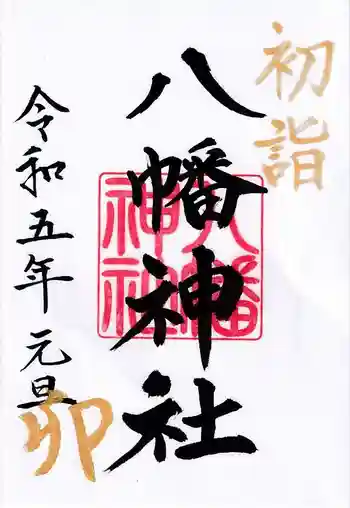 初詣
八幡神社
八幡
神社
令和五年元旦
卯